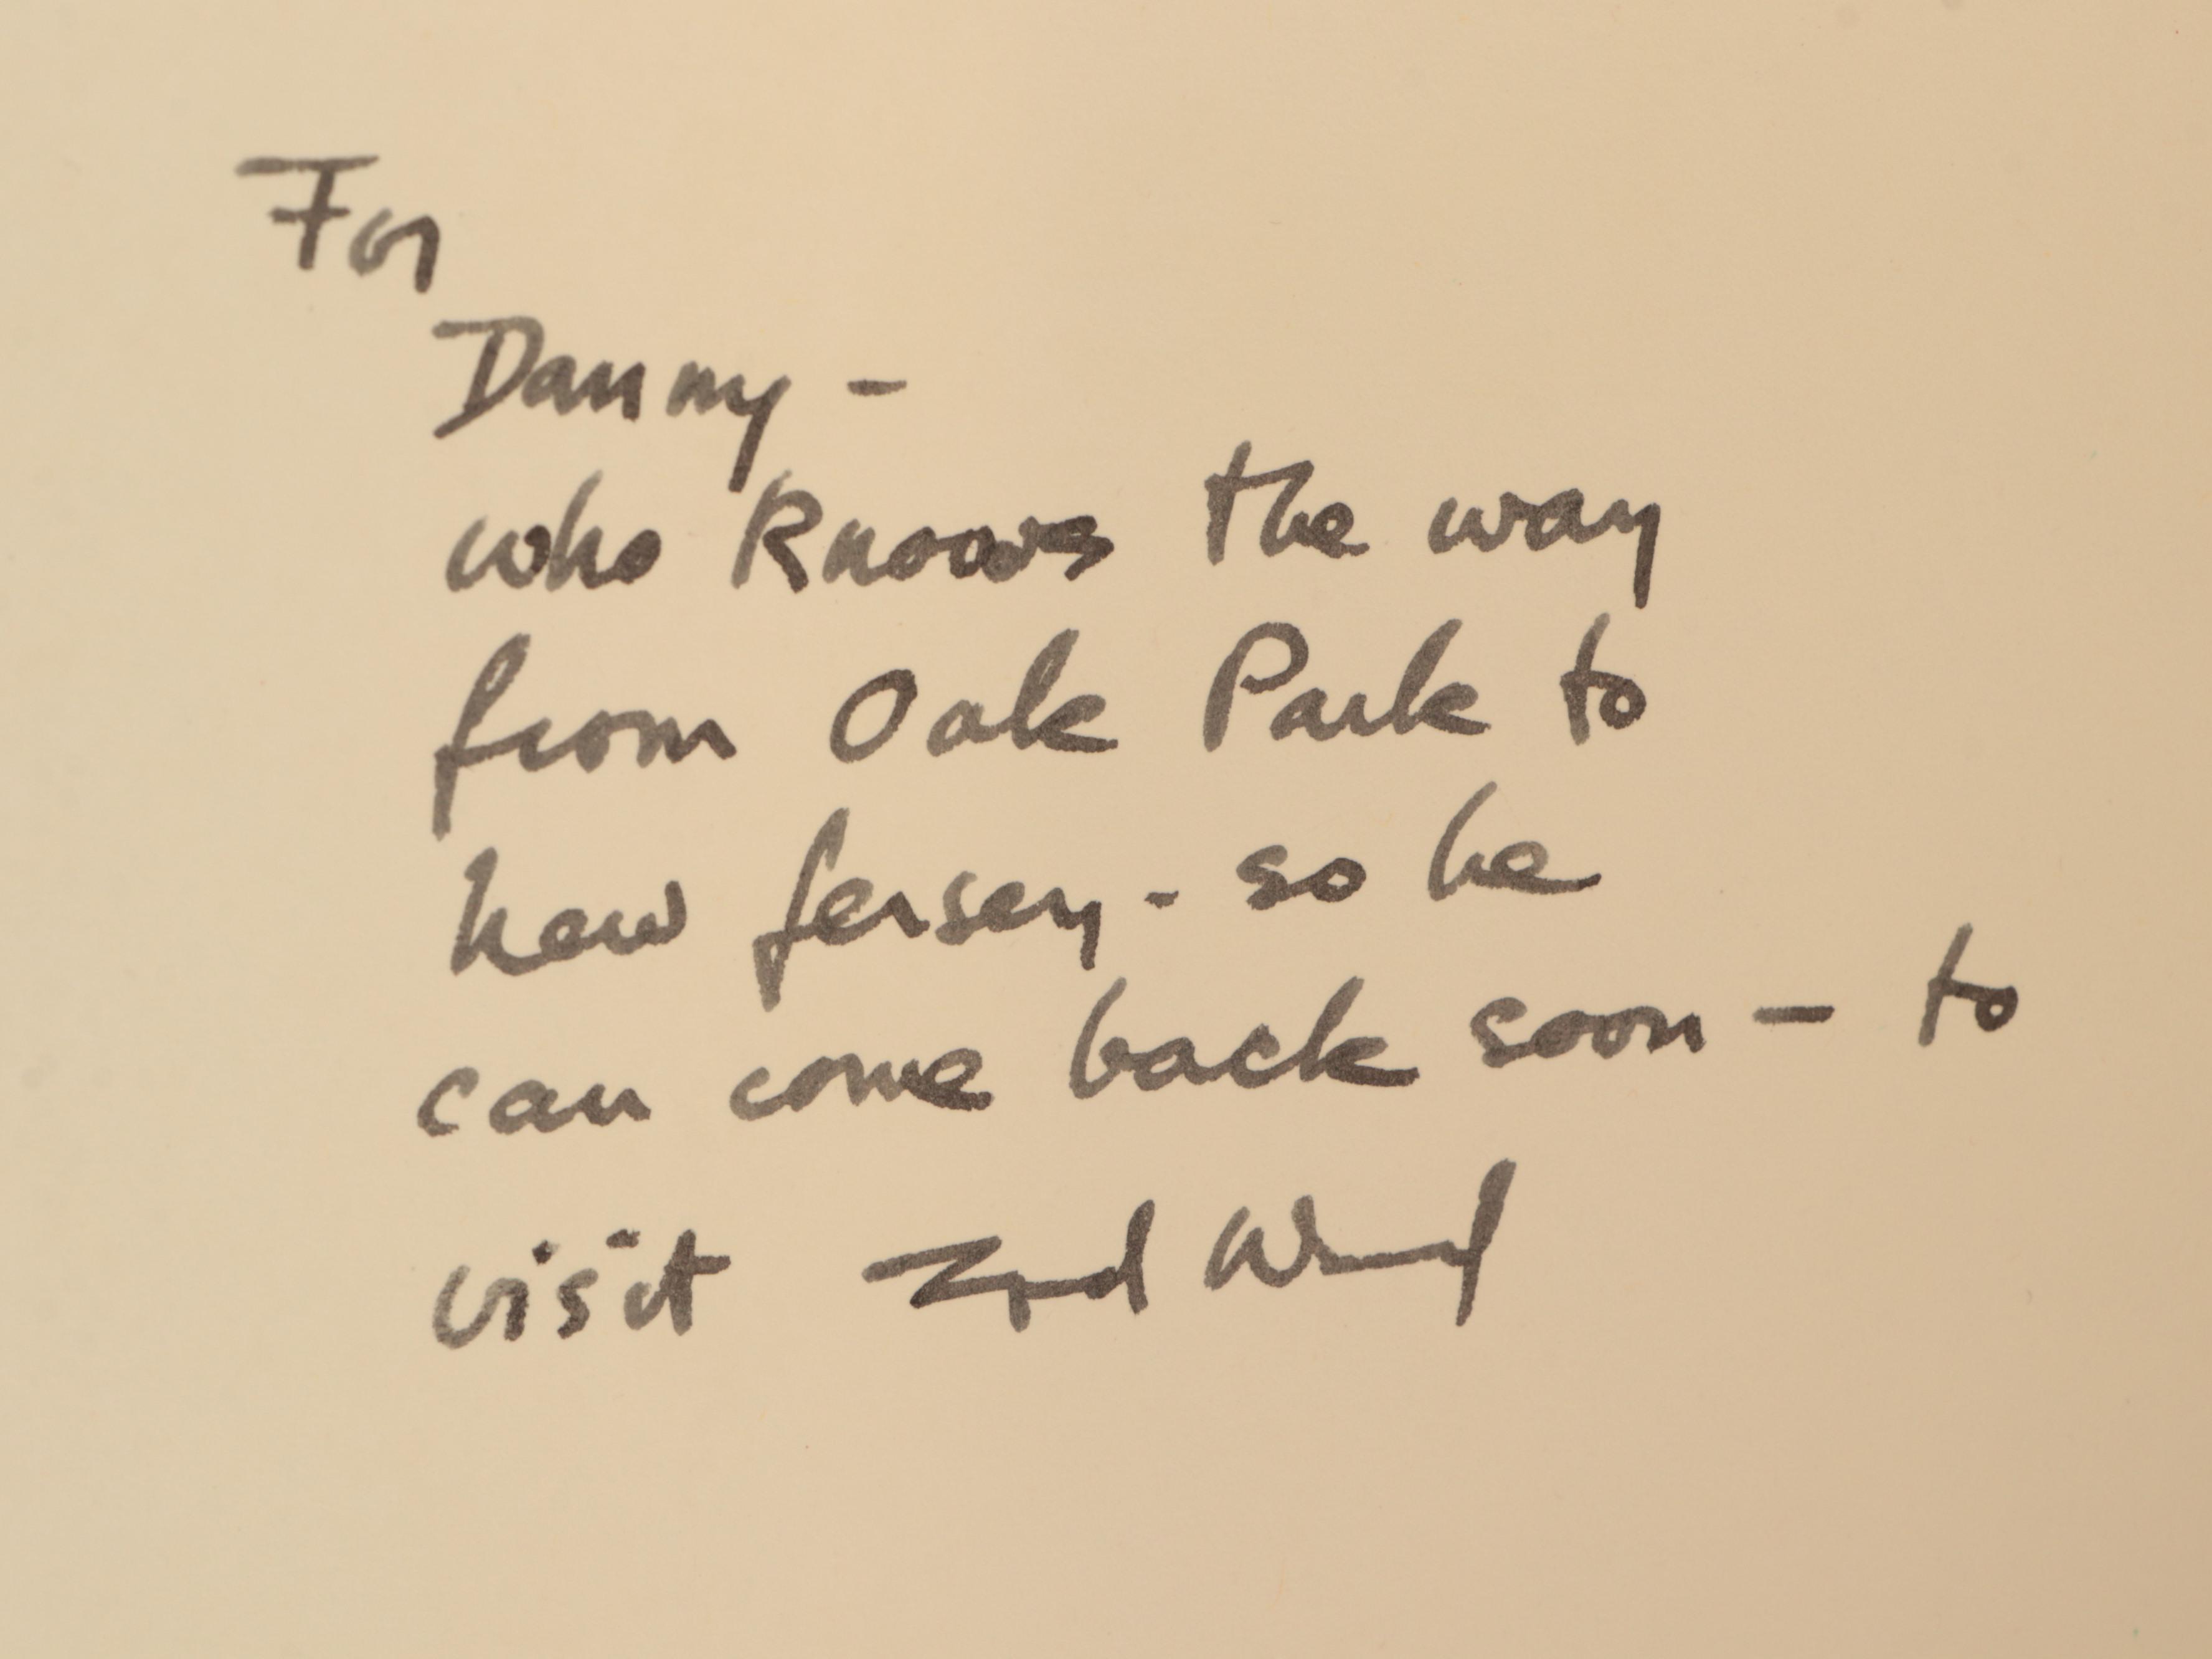 For
Danny -
who knows the way
from Oak Park to
new Jersey - so he
can come back soon - to
visit